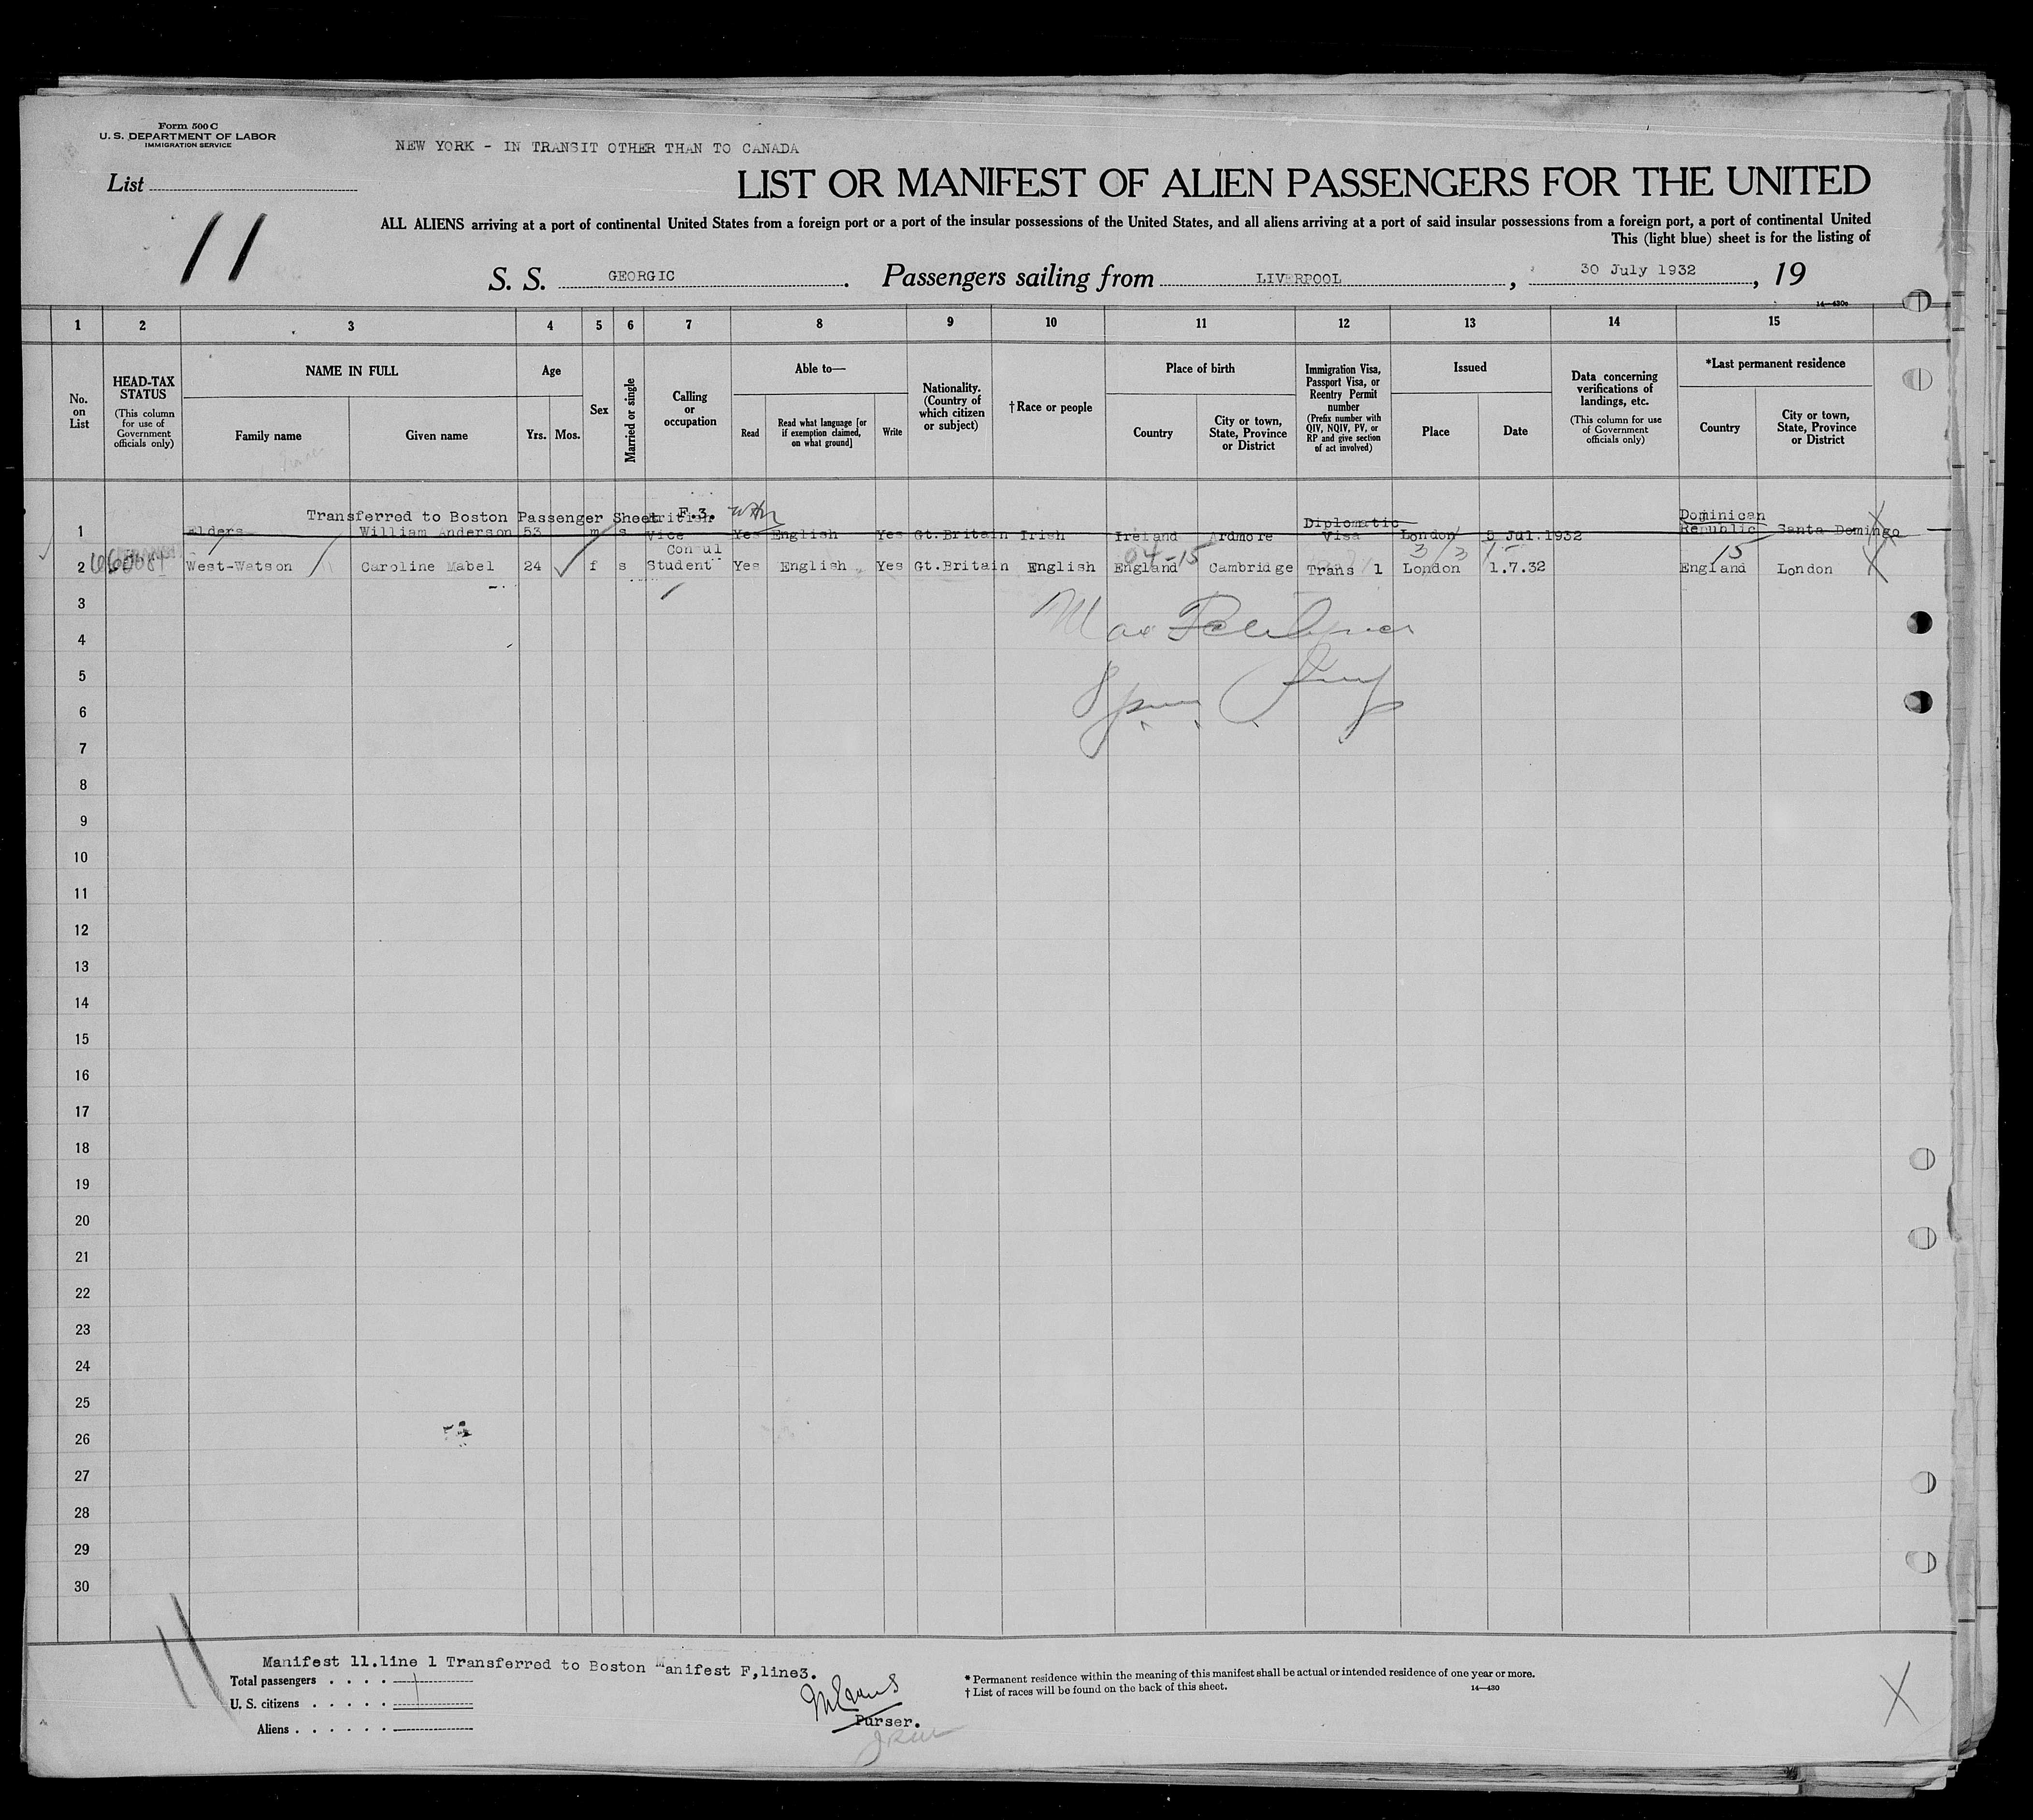 Form 500 C
U. S. DEPARTMENT OF LABOR
IMMIGRATION SERVICE
NEW YORK - IN TRANSIT OTHER THAN TO CANADA
List
11
LIST OR MANIFEST OF ALIEN PASSENGERS FOR THE UNITED
ALL ALIENS arriving at a port of continental United States from a foreign port or a port of the insular possessions of the United States, and all aliens arriving at a port of said insular possessions from a foreign port, a port of continental United
This (light blue) sheet is for the listing of
S. S. GEORGIC. Passengers sailing from LIVERPOOL, 30 July 1932, 19
14—430c
1 2 3 4 5 6 7 8 9 10 11 12 13 14 15
No. on List
HEAD-TAX STATUS
(This column for use of Government officials only)
NAME IN FULL
Family name
Given name
Age
Yrs. Mos.
Sex
Married or single
Calling or occupation
Able to—
Read
Read what language [or if exemption claimed, on what ground]
Write
Nationality. (Country of which citizen or subject)
†Race or people
Place of birth
Country
City or town, State, Province or District
Immigration Visa, Passport Visa, or Reentry Permit number
(Prefix number with QIV, NQIV, PV, or RP and give section of act involved)
Issued
Place
Date
Data concerning verifications of landings, etc.
(This column for use of Government officials only)
*Last permanent residence
Country
City or town, State, Province or District
Transferred to Boston Passenger Sheet F.3.
1 Elders William Anderson 53 m s British Vice Consul Yes English Yes Gt.Britain Irish Ireland Ardmore Diplomatic Visa London 5 Jul.1932 Dominican Republic Santa Domingo
04-15 3/3 15
2 West-Watson Caroline Mabel 24 f s Student Yes English Yes Gt.Britain English England Cambridge Trans 1 London 1.7.32 England London
3
4
5
6
7
8
9
10
11
12
13
14
15
16
17
18
19
20
21
22
23
24
25
26
27
28
29
30
11
Manifest 11.line 1 Transferred to Boston Manifest F,line3.
Total passengers
U. S. citizens
Aliens
Purser.
* Permanent residence within the meaning of this manifest shall be actual or intended residence of one year or more.
† List of races will be found on the back of this sheet.
14—430